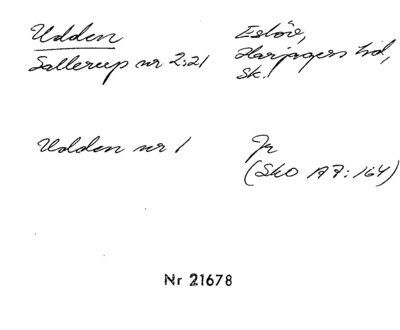 Udden Eslöv,
Sallerup nr 2:21 Harjagers hd,
Sk.
Udden nr 1 Jr
(SkO A7:164)
Nr 21678